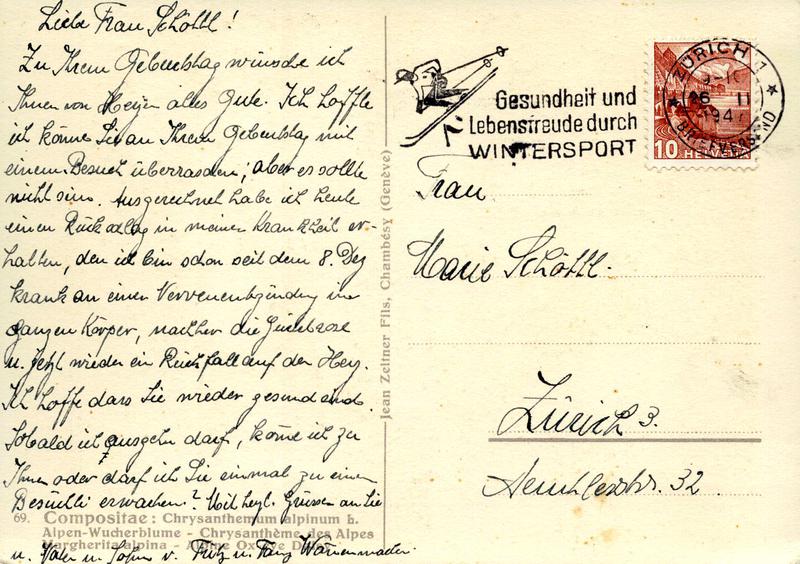 Liebe Frau Schöttl!
Zu Ihrem Geburtstag wünsche ich
Ihnen von Herzen alles Gute. Ich hoffte
ich könne Sie an Ihrem Geburtstag mit
einem Besuch überraschen; aber es sollte
nicht sein. Ausgerechnet habe ich heute
einen Rückschlag in meiner Krankheit er-
halten, den ich bin schon seit dem 8. Dez
krank an einer Nervenentzündung im
ganzen Körper, nachher die Gürtelrose
u. jetzt wieder ein Rückfall auf den Herz.
Ich hoffe dass Sie wieder gesund sind.
Sobald ich ausgehn darf, kome ich zu
Ihnen oder darf ich Sie einmal zu einem
Besüchli erwarten? Mit herzl. Grüssen an Sie
u. Vater u. Sohn v. Fritz u.
69. Compositae: Chrysanthemum alpinum h.
Alpen-Wucherblume - Chrysanthème des Alpes
Margherita alpina - Alpine Ox
Jean Zeltner Fils, Chambésy (Genève)
Gesundheit und
Lebensfreude durch
WINTERSPORT
ZÜRICH 1
26. II
1947
BRIEFVERSAND
10 HELVETIA
Frau
Marie Schöttl.
Zürich 3.
32